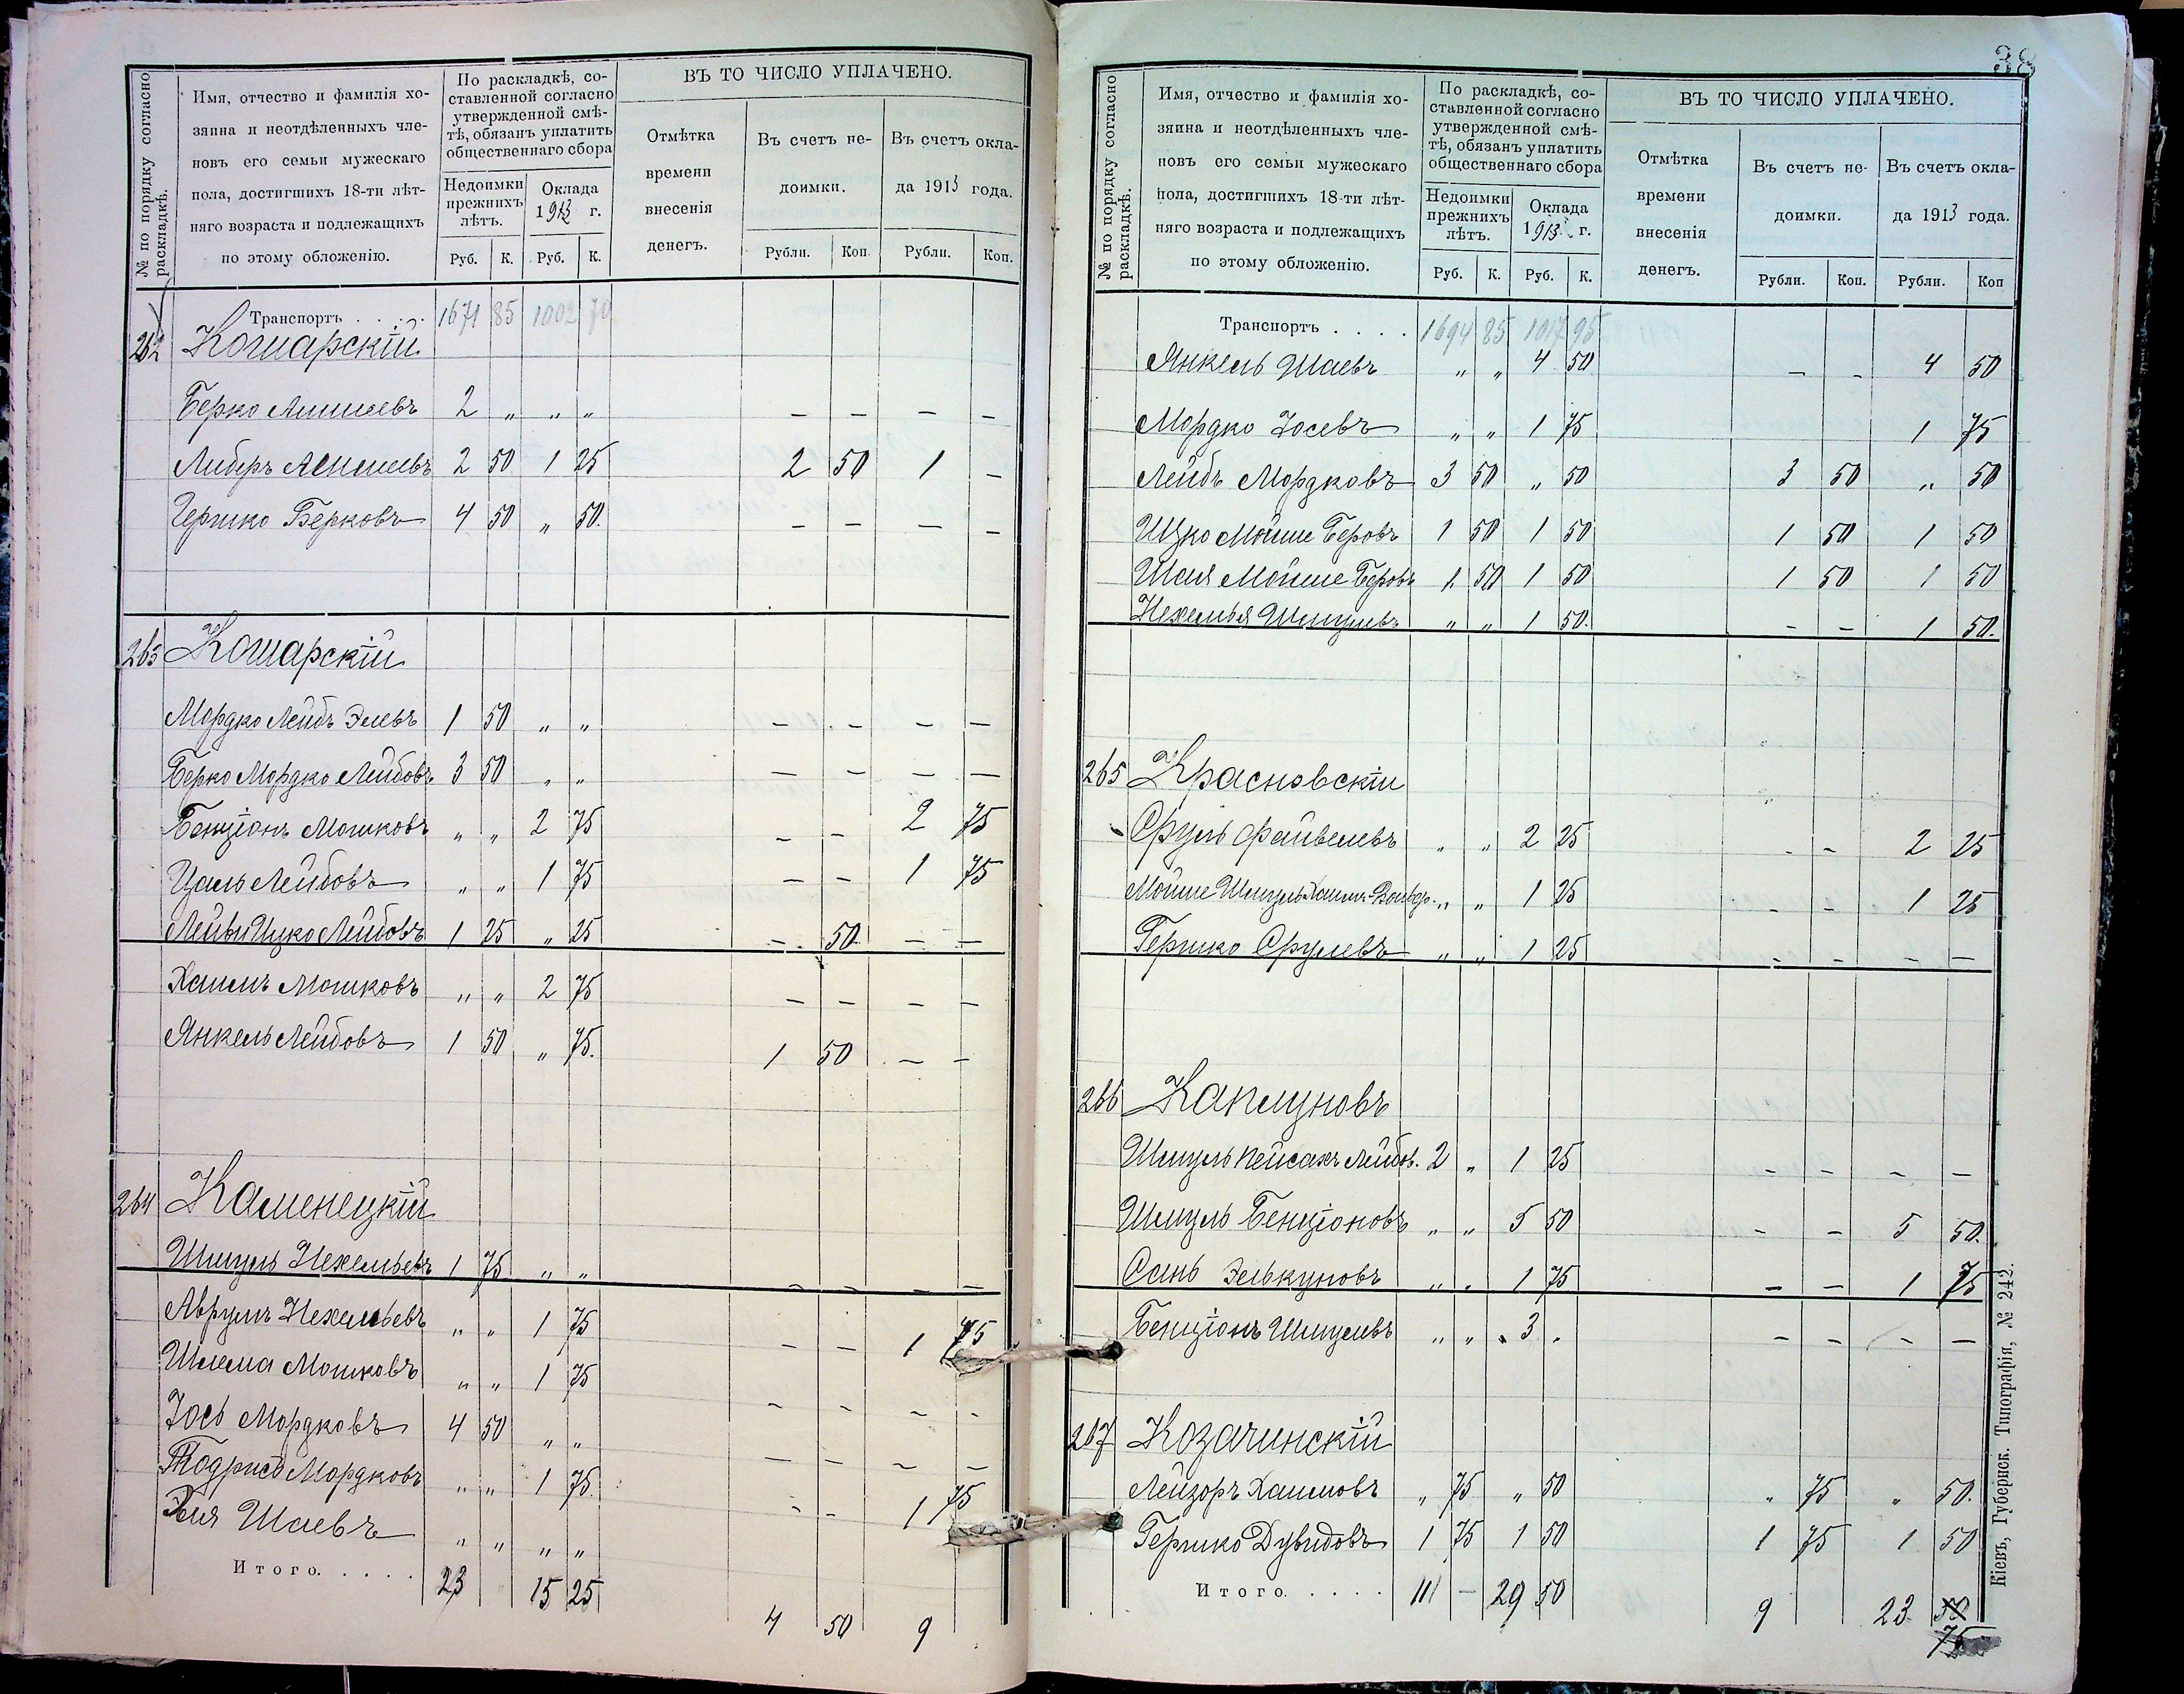 № по порядку согласно раскладкѣ.
Имя, отчество и фамилія хо-
зяина и неотдѣленныхъ чле-
новъ его семьи мужескаго
пола, достигшихъ 18-ти лѣт-
няго возраста и подлежащихъ
по этому обложенію.
По раскладкѣ, со-
ставленной согласно
утвержденной смѣ-
тѣ, обязанъ уплатить
общественнаго сбора
Недоимки прежнихъ лѣтъ.
Оклада 1913 г.
Руб. К. Руб. К.
ВЪ ТО ЧИСЛО УПЛАЧЕНО.
Отмѣтка
времени
внесенія
денегъ.
Въ счетъ не-
доимки.
Въ счетъ окла-
да 1913 года.
Рубли. Коп. Рубли. Коп.
Транспортъ . . . . 1671 85 1002 70
262 Кошарскій
Берко Аншелевъ 2 „ „ „ – – – –
Либеръ Аншелевъ 2 50 1 25 2 50 1 –
Гершко Берковъ 4 50 „ 50. – – – –
263 Кошарскій
Мордко Лейбъ Элевъ 1 50 „ „ – – – –
Берко Мордко Лейбовъ 3 50 „ „ – – – –
Бенціонъ Мошковъ „ „ 2 75 – – 2 75
Цаль Лейбовъ „ „ 1 75 – – 1 75
Ицко Лейбовъ 1 25 „ 25 – 50 – –
Хаимъ Мошковъ „ „ 2 75 – – – –
Янкель Лейбовъ 1 50 „ 75. 1 50 – –
264 Каменецкій
Шмуль Нехемьевъ 1 75 „ „ – – – –
Аврумъ Нехемьевъ „ „ 1 75 – – 1 75
Шлема Мошковъ „ „ 1 75 – – – –
Іось Мордковъ 4 50 „ „ – – – –
Тодрисъ Мордковъ „ „ 1 75. – – 1 75
Шаевъ „ „ „ „
Итого. . . . . 23 15 25 4 50 9
38
№ по порядку согласно раскладкѣ.
Имя, отчество и фамилія хо-
зяина и неотдѣленныхъ чле-
новъ его семьи мужескаго
пола, достигшихъ 18-ти лѣт-
няго возраста и подлежащихъ
по этому обложенію.
По раскладкѣ, со-
ставленной согласно
утвержденной смѣ-
тѣ, обязанъ уплатить
общественнаго сбора
Недоимки прежнихъ лѣтъ.
Оклада 1913 г.
Руб. К. Руб. К.
ВЪ ТО ЧИСЛО УПЛАЧЕНО.
Отмѣтка
времени
внесенія
денегъ.
Въ счетъ не-
доимки.
Въ счетъ окла-
да 1913 года.
Рубли. Коп. Рубли. Коп
Транспортъ . . . . 1694 85 1017 95
Янкель Шаевъ „ „ 4 50 – – 4 50
Мордко Іосевъ „ „ 1 75 1 75
Лейбъ Мордковъ 3 50 „ 50 3 50 „ 50
Ицко Мойше Беровъ 1 50 1 50 1 50 1 50
Шая Мойше Беровъ 1 50 1 50 1 50 1 50
Нехемья Шмулевъ „ „ 1 50. – – 1 50.
265 Красновскій
Сруль Файвелевъ „ „ 2 25 – – 2 25
Мойше Шмуль Хаимъ-Вольф. „ „ 1 25 – – 1 25
Гершко Срулевъ „ „ 1 25 – – – –
266 Каплуновъ
Шмуль Пейсахъ Лейбов. 2 „ 1 25 – – – –
Шмуль Бенціоновъ „ „ 5 50 – – 5 50.
Сань Элькуновъ „ „ 1 75 – – 1 75
Бенціонъ Шмулевъ „ „ 3 „ – – – –
267 Козачинскій
Лейзоръ Хаимовъ „ 75 „ 50 „ 75 „ 50.
Гершко Дувидовъ 1 75 1 50 1 75 1 50
Итого. . . . . 11 – 29 50 9 23 50
75
Кіевъ, Губернск. Типографія, № 242.